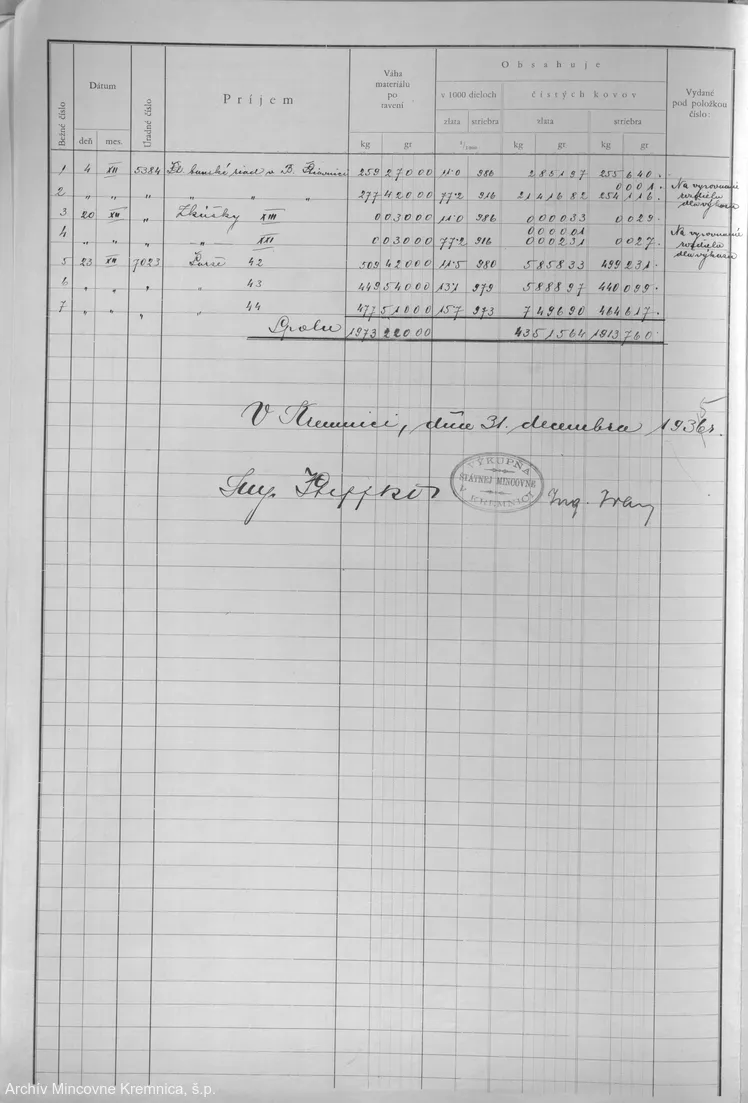 Bežné číslo
Dátum
deň mes.
Úradné číslo
Príjem
Váha materiálu po tavení
kg gr
Obsahuje
v 1000 dieloch čistých kovov
zlata striebra zlata striebra
1/1000 kg gr kg gr
Vydané pod položkou číslo:
1 4 XII 5384 Št. banské riad. v B. Štiavnici 259 27000 11·0 986 2 85197 255 640·
0001· Na vyrovnanie
2 „ „ „ „ „ „ 277 42000 77·2 916 21 41682 254 116· rozdielu
sta výkazu
3 20 XII „ Zkúšky XIII 0 03000 11·0 986 0 00033 0 029·
0 00001 Na vyrovnanie
4 „ „ „ „ XXI 0 03000 77·2 916 0 00231 0 027· rozdielu
sta výkazu
5 23 XII 7023 42 509 42000 11·5 980 5 85833 499 231·
6 „ „ „ „ 43 449 54000 13·1 979 5 88897 440 099·
7 „ „ „ „ 44 477 51000 15·7 973 7 49690 464 617·
Spolu 1973 22000 43 51564 1913 760·
V Kremnici, dňa 31. decembra 1935 r.
VÝKUPŇA
ŠTÁTNEJ MINCOVNE
V KREMNICI
Ing.
Archív Mincovne Kremnica, š.p.